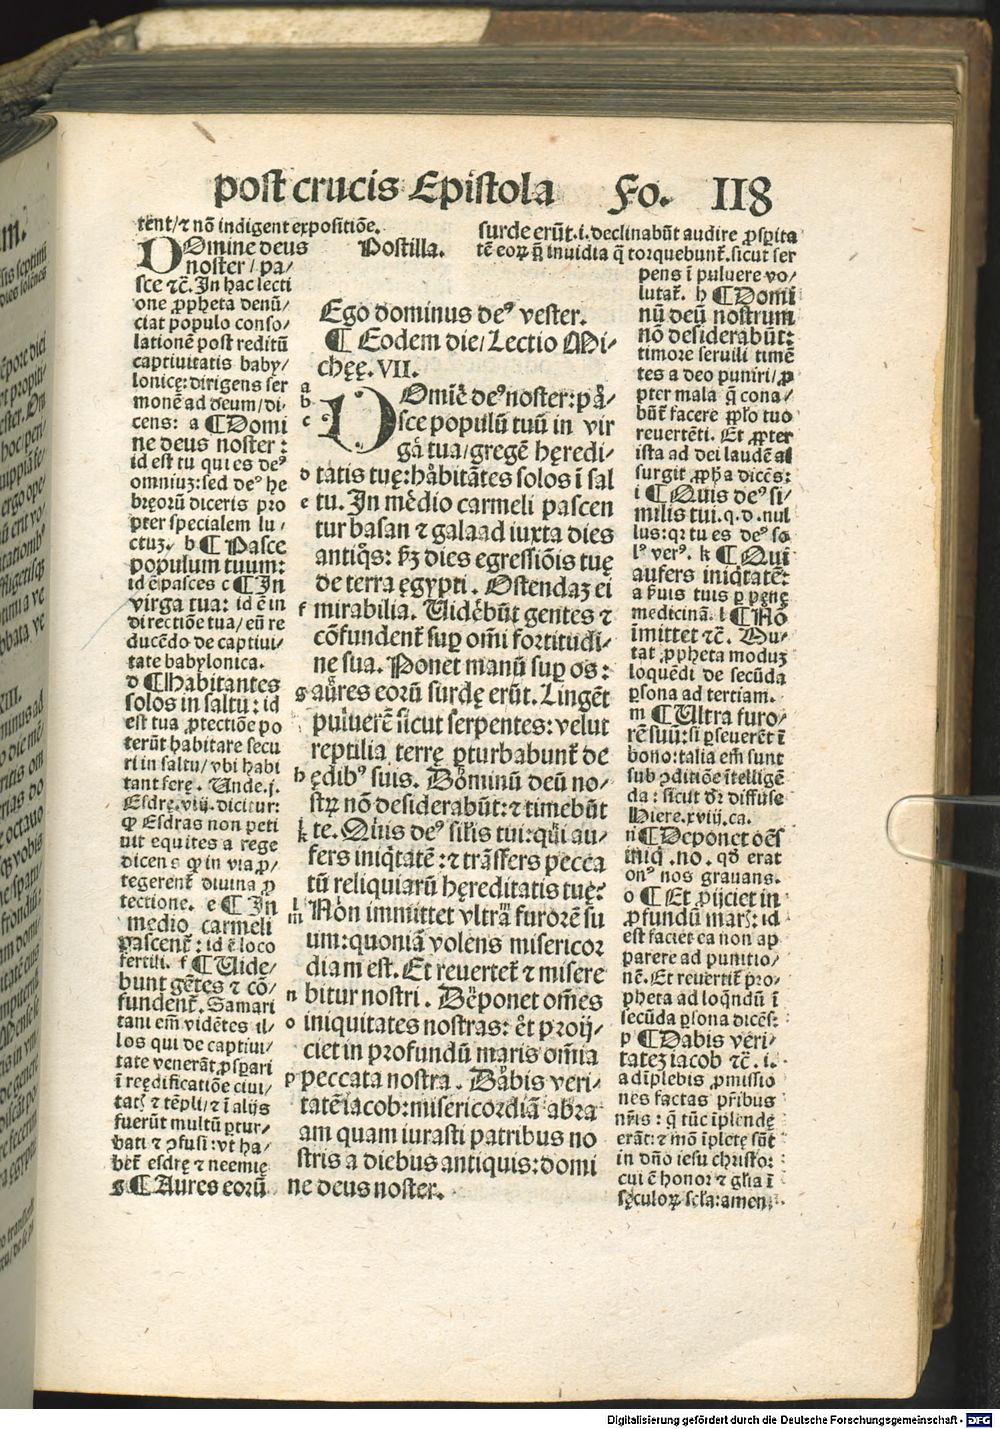 post crucis Epistola Fo. 118
tent/ ⁊ nõ indigent expositiõe.
Postilla.
DOmine deus
noster / pa/
sce ⁊c̃. In hac lecti
one ꝓpheta denũ/
ciat populo conso/
lationẽ post reditũ
captiuitatis baby/
lonicę: dirigens ser
monẽ ad deum/ di/
cens: a ¶ Domi
ne deus noster:
id est tu qui es deꝰ
omniuꝫ: sed deꝰ he
bręorũ diceris pro
pter specialem lu/
ctuꝫ. b ¶ Pasce
populum tuum:
id ẽ pasces c ¶ In
virga tua: id ẽ in
directiõe tua/ eũ re
ducẽdo de captiui/
tate babylonica.
d ¶ Habitantes
solos in saltu: id
est tua ꝓtectiõe po
terũt habitare secu
ri in saltu/ vbi habi
tant ferę. Unde .j.
Esdrę. viij. dicitur:
ꝙ Esdras non peti
uit equites a rege
dicens ꝙ in via ꝓ/
tegerent̃ diuina ꝓ
tectione. e ¶ In
medio carmeli
pascent̃: id ẽ loco
fertili. f ¶ Uide/
bunt gẽtes ⁊ cõ/
fundent̃. Samari
tani em̃ vidẽtes il/
los qui de captiui/
tate venerãt ꝓsꝑari
ĩ reędificatiõe ciui/
tatꝭ ⁊ tẽpli/ ⁊ ĩ alijs
fuerũt multũ ꝑtur/
bati ⁊ ꝯfusi: vt ha/
bet̃ esdrę ⁊ neemię
g ¶ Aures eorũ
Ego dominus deꝰ vester.
¶ Eodem die/ Lectio Mi-
chęę. VII.
a
b
c
DOmiẽ deꝰ noster: pa/
sce populũ tuũ in vir
ga tua/ gregẽ hęredi/
d tatis tuę: habitãtes solos ĩ sal
e tu. In medio carmeli pascen
tur basan ⁊ galaad iuxta dies
antiq̃s: ẜꝫ dies egressiõis tuę
de terra ęgypti. Ostendaꝫ ei
f mirabilia. Uidebũt gentes ⁊
cõfundent̃ suꝑ om̃i fortitudi/
ne sua. Ponet manũ suꝑ os:
g aures eorũ surdę erũt. Lingẽt
puluerẽ sicut serpentes: velut
reptilia terrę ꝑturbabunt̃ de
h ędibꝰ suis. Dominũ deũ no/
strꝫ nõ desiderabũt: ⁊ timebũt
i k te. Quis deꝰ siĩlis tui: qui au/
fers iniq̃tatẽ: ⁊ trãsfers pecca
tũ reliquiarũ hęreditatis tuę?
l m Non immittet vltra furorẽ su
um: quoniã volens misericor
diam est. Et reuertet̃ ⁊ misere
n bitur nostri. Deponet om̃es
o iniquitates nostras: et proij/
ciet in profundũ maris om̃ia
p peccata nostra. Dabis veri/
tatẽ iacob: misericordiã abra
am quam iurasti patribus no
stris a diebus antiquis: domi
ne deus noster.
surde erũt. i. declinabũt audire ꝓsꝑita
tẽ eoꝝ q̃ inuidia q̃ torquebunt̃. sicut ser
pens ĩ puluere vo/
lutat̃. h ¶ Domi
nũ deũ nostrum
nõ desiderabũt:
timore seruili timẽ
tes a deo puniri/ ꝓ
pter mala q̃ cona/
bũt̃ facere ꝓꝉo tuo
reuertẽti. Et ꝓpter
ista ad dei laudẽ as
surgit ꝓpħa dicẽs:
i ¶ Quis deꝰ si/
milis tui. q. d. nul
lus: qꝛ tu es deꝰ so
lꝰ verꝰ. k ¶ Qui
aufers iniq̃tatẽ:
a ẜuis tuis ꝑ pęnę
medicinã. l ¶ Nõ
ĩmittet ⁊c̃. Mu/
tat ꝓpheta moduꝫ
loquẽdi de secũda
ꝑsona ad tertiam.
m ¶ Ultra furo/
rẽ suũ: si ꝑseuerẽt ĩ
bono: talia em̃ sunt
sub ꝯditiõe ĩtelligẽ
da: sicut dr̃ diffuse
Hiere. xviij. ca.
n ¶ Deponet oẽs
iniq̃. no. qđ erat
onꝰ nos grauans.
o ¶ Et ꝓijciet in
ꝓfundũ marꝭ: id
est faciet ea non ap
parere ad punitio/
nẽ. Et reuertit̃ pro/
pheta ad loq̃ndũ ĩ
secũda ꝑsona dicẽs:
p ¶ Dabis veri/
tateꝫ iacob ⁊c̃. i.
adĩplebis ꝓmissio
nes factas pr̃ibus
nr̃is: q̃ tũc ĩplendę
erãt: ⁊ mõ ĩpletę sũt
in dño iesu christo:
cui ẽ honor ⁊ gľia ĩ
sęculoꝝ scľa: amen.
Digitalisierung gefördert durch die Deutsche Forschungsgemeinschaft - DFG